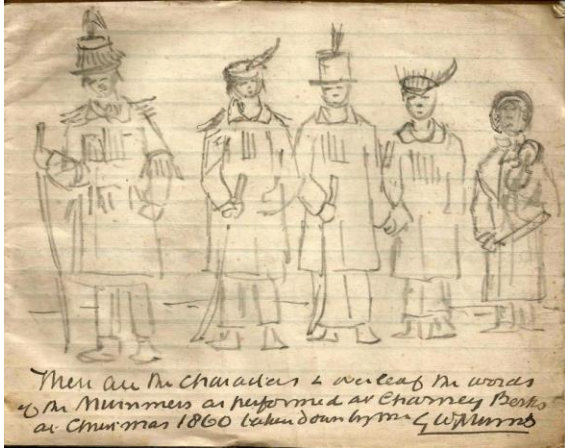 These are the Characters & overleaf the words
of the Mummers as performed at Charney Berks
at Christmas 1860 taken down by me